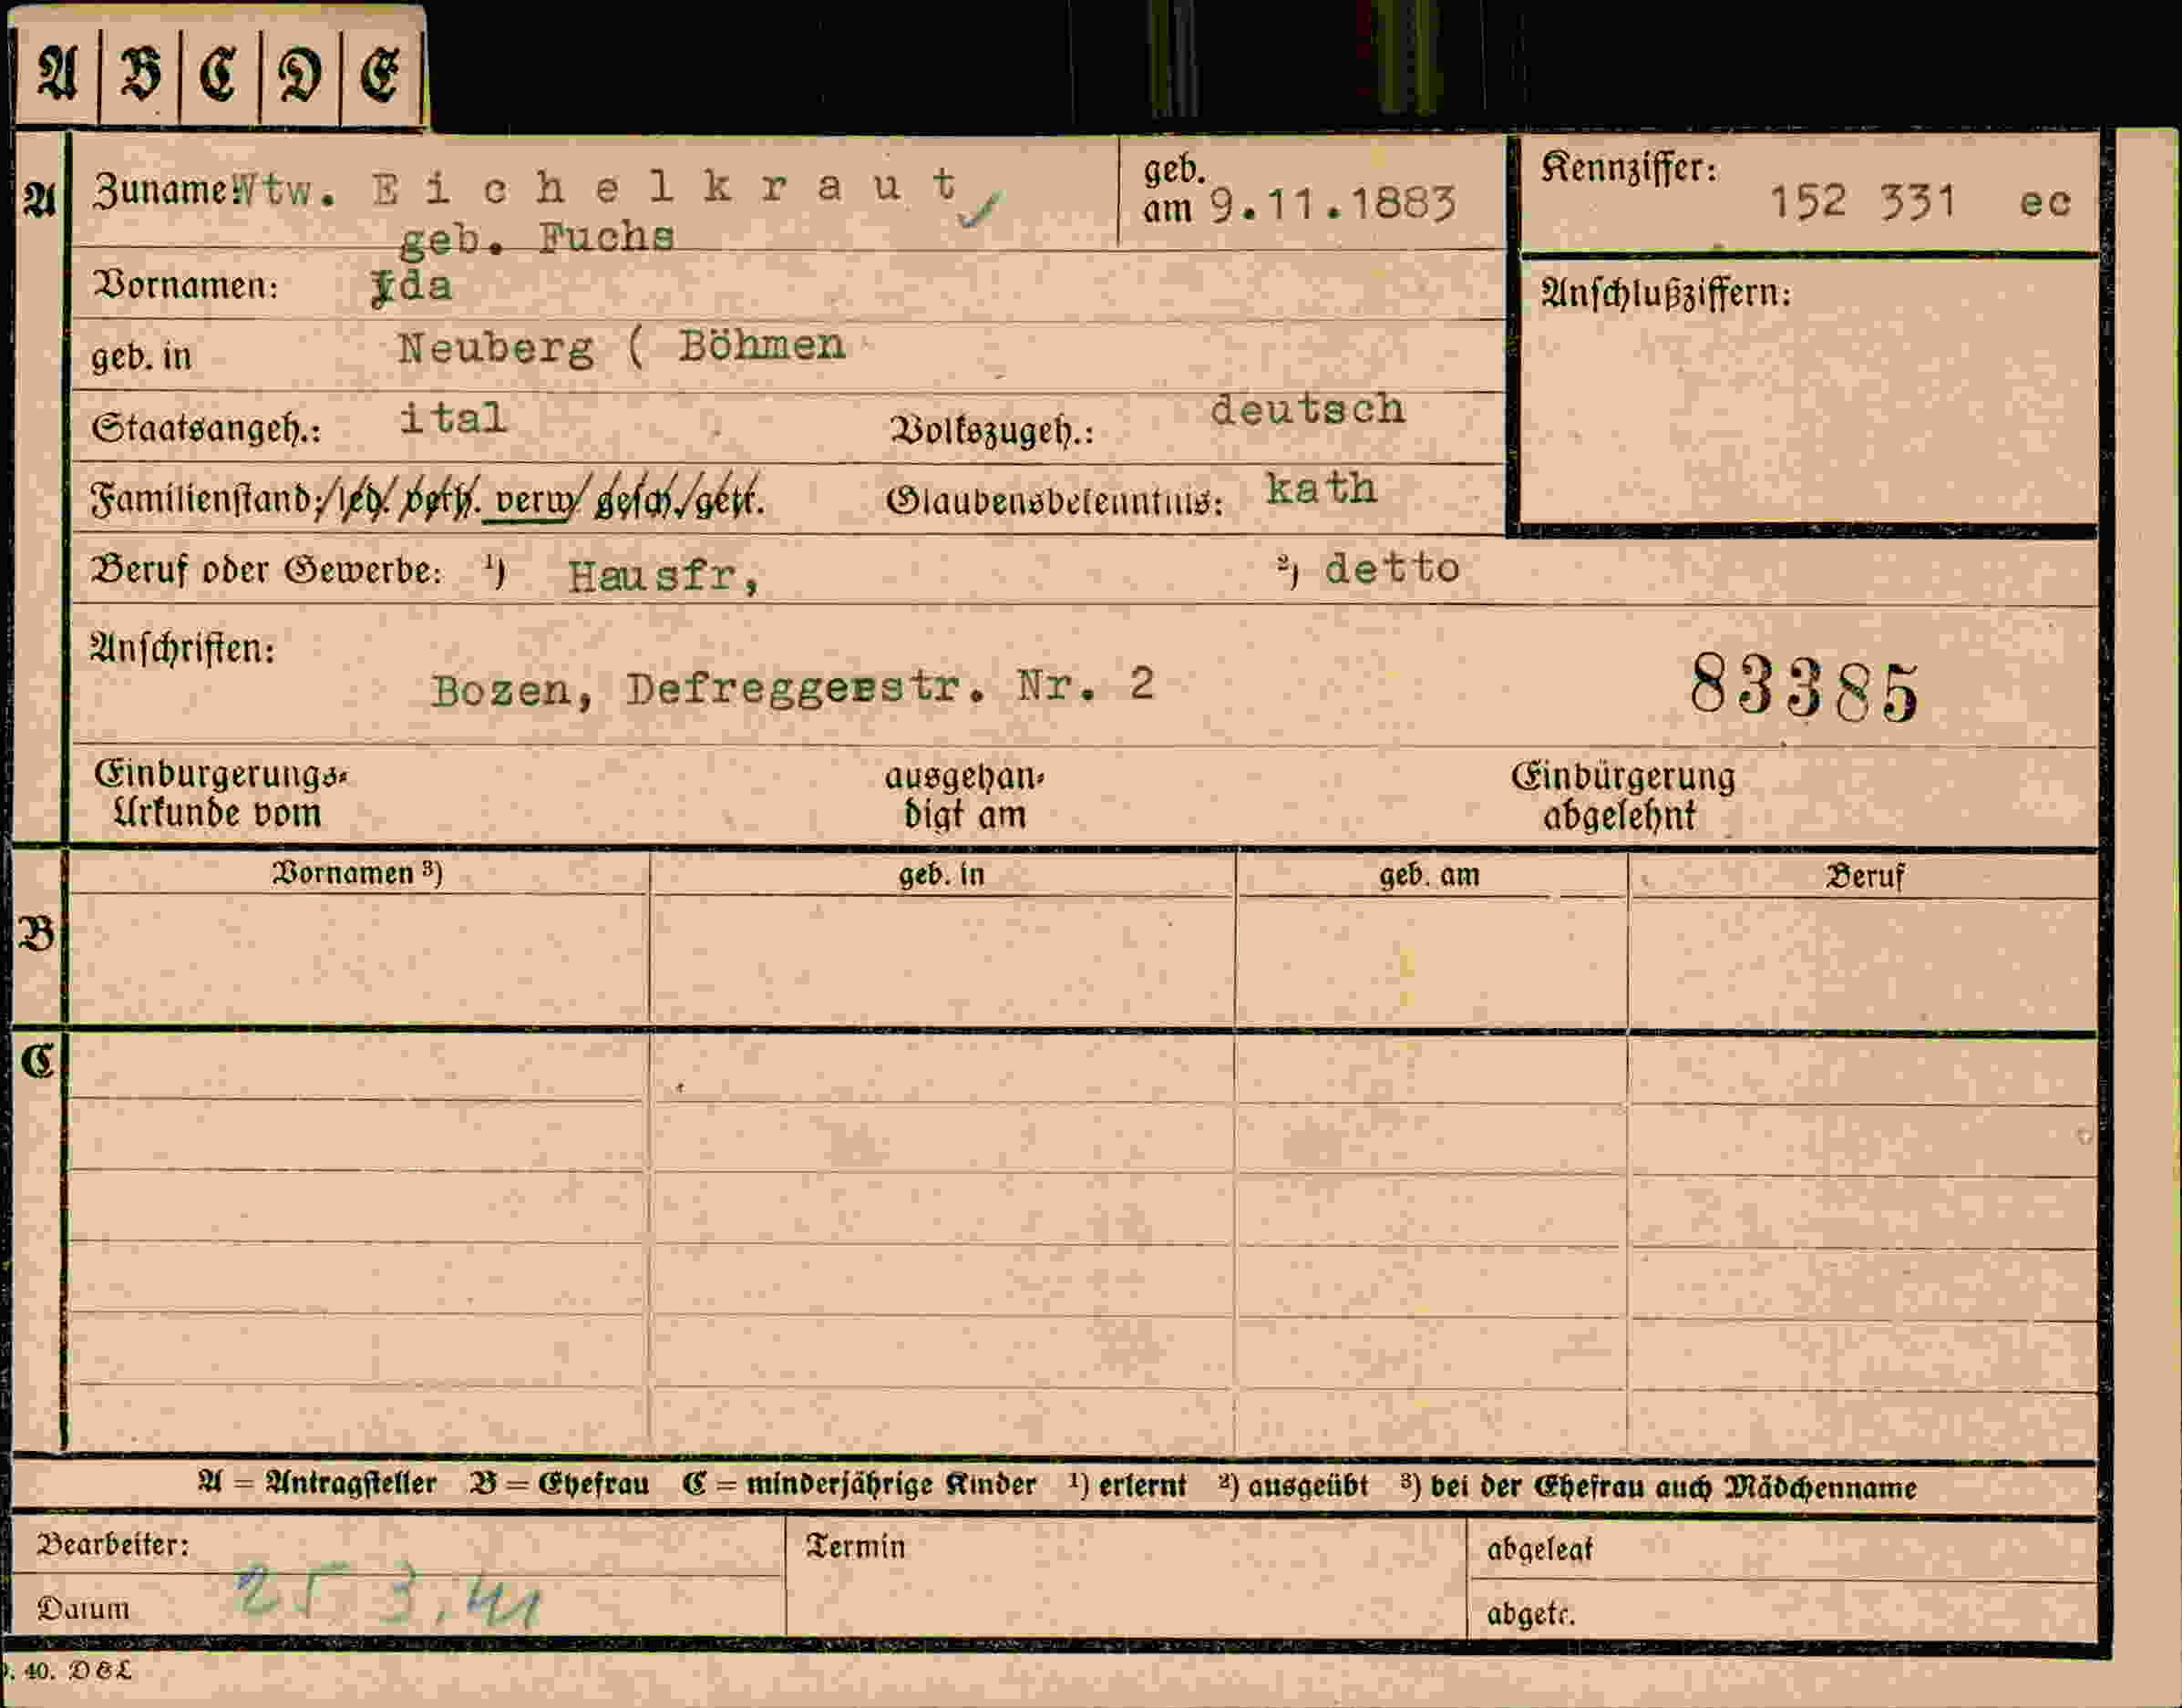 A B C D E
A Zuname: Wtw. Eichelkraut geb. am 9.11.1883 Kennziffer: 152 331 ec
geb. Fuchs
Vornamen: Ida Anschlußziffern:
geb. in Neuberg ( Böhmen
Staatsangeh.: ital Volkszugeh.: deutsch
Familienstand: led. verh. verw. gesch. getr. Glaubensbekenntnis: kath
Beruf oder Gewerbe: ¹) Hausfr, ²) detto
Anschriften:
Bozen, Defreggerstr. Nr. 2 83385
Einbürgerungs-Urkunde vom ausgehändigt am Einbürgerung abgelehnt
Vornamen ³) geb. in geb. am Beruf
B
C
A = Antragsteller B = Ehefrau C = minderjährige Kinder ¹) erlernt ²) ausgeübt ³) bei der Ehefrau auch Mädchenname
Bearbeiter: Termin abgelegt
Datum 25 3.41 abgetr.
40. D&L